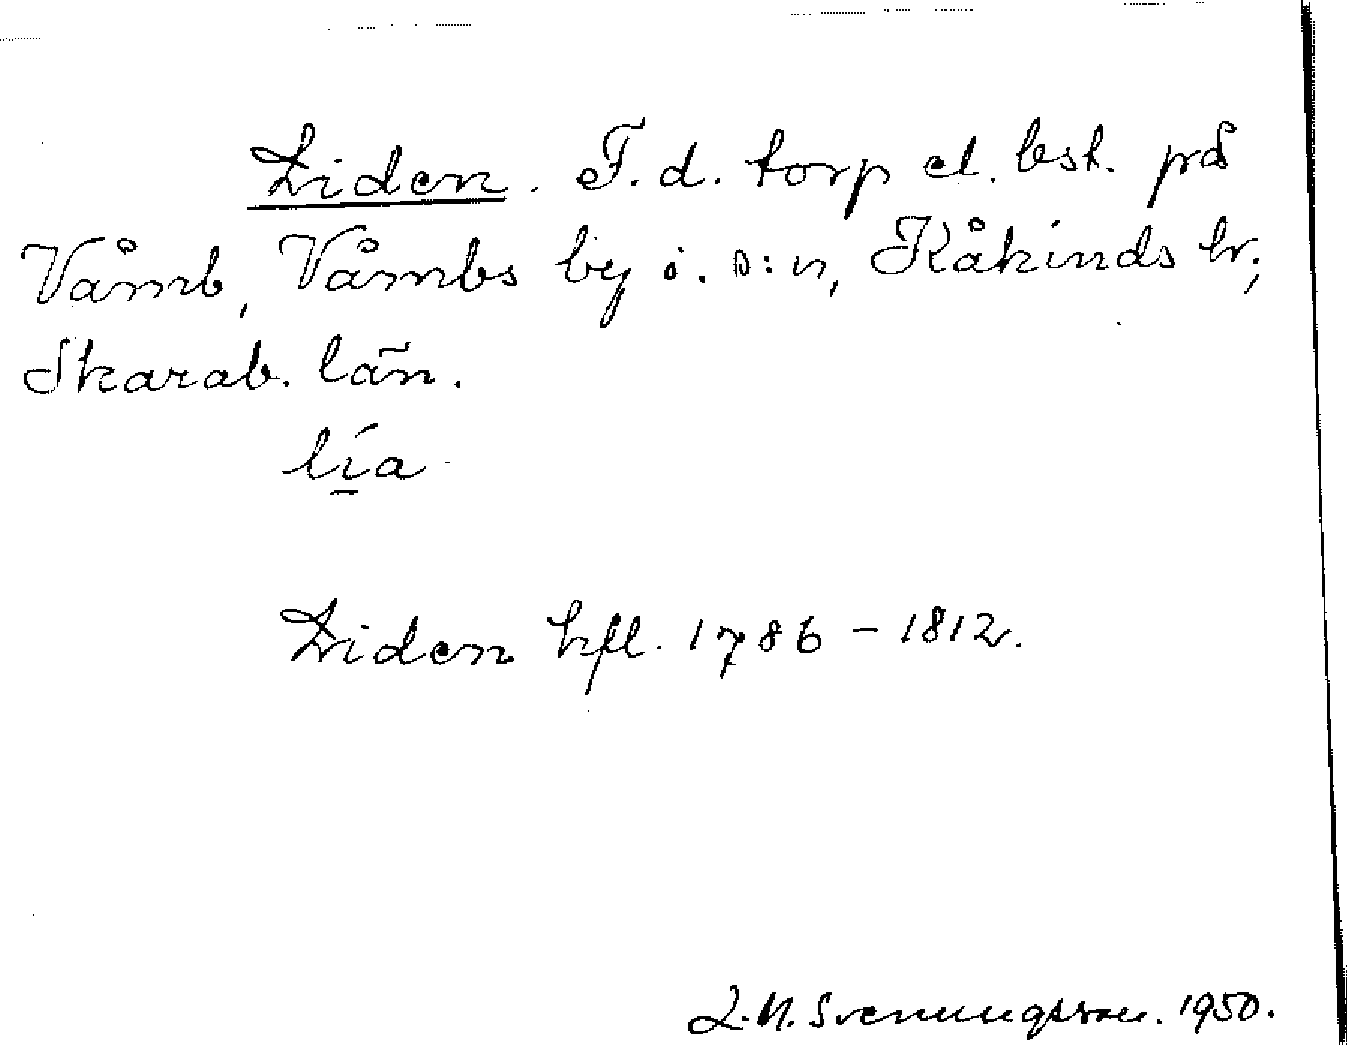 Liden. F.d. torp el. bst. på
Våmb, Våmbs by o. s:n, Kåkinds hr,
Skarab. län.
lía
Liden hfl. 1786 – 1812.
L.M. Svenungsson. 1950.